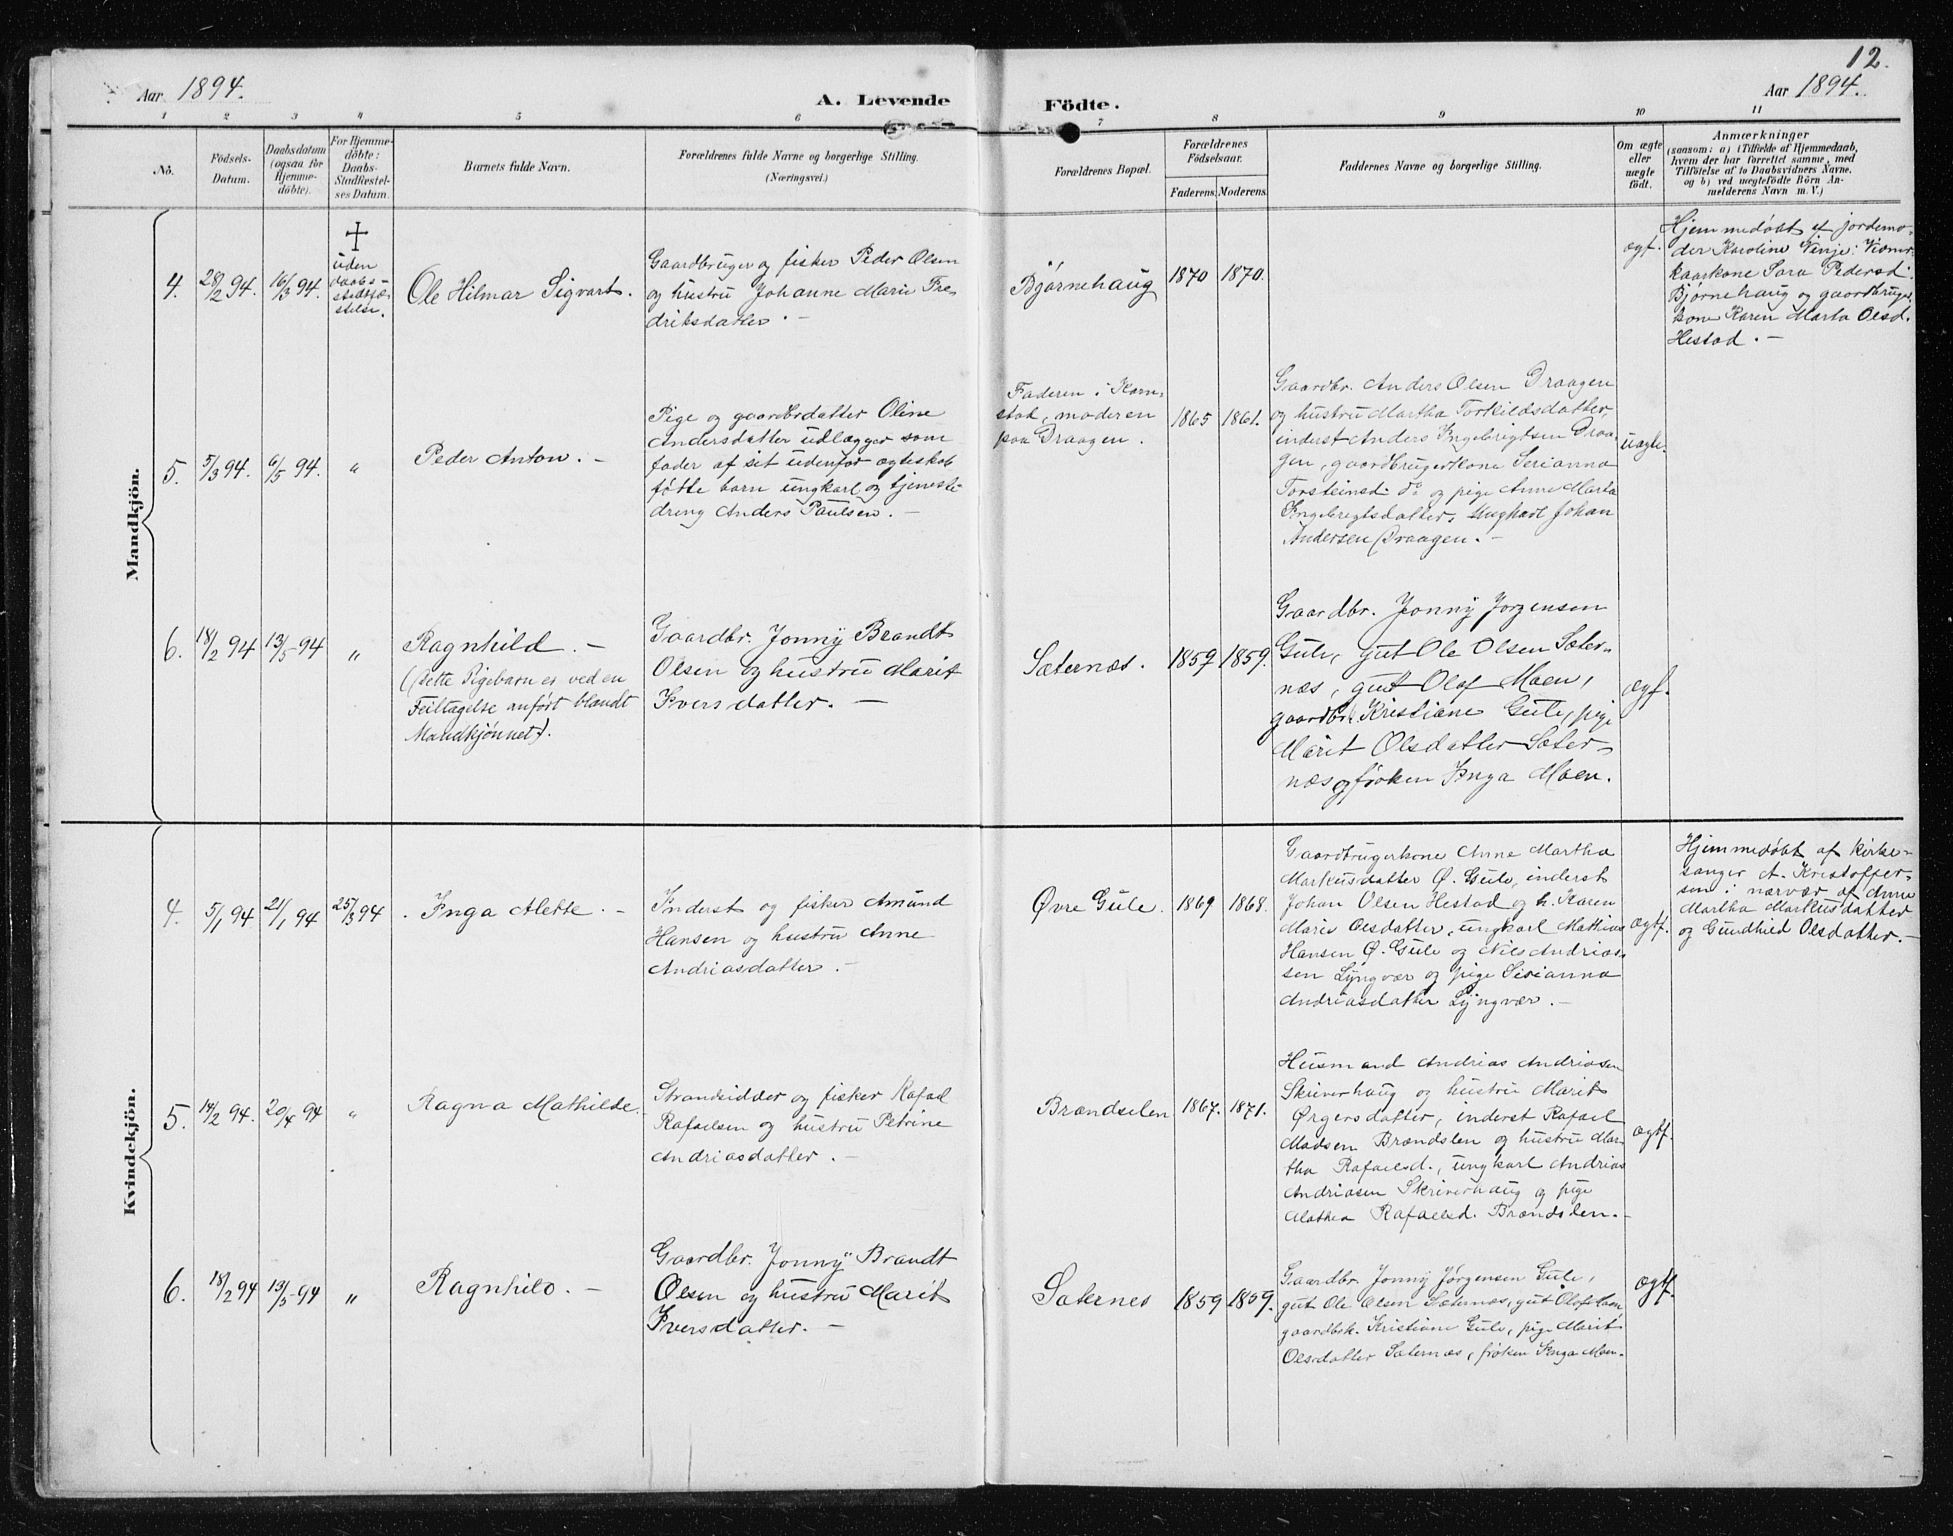 12.
Aar 1894.
A. Levende Födte.
Aar 1894.
1 2 3 4 5 6 7 8 9 10 11
No.
Födsels-
Datum.
Daabsdatum
(ogsaa for
Hjemme-
döbte).
For Hjemme-
döbte:
Daabs-
Stadfæstel-
ses Datum.
Barnets fulde Navn.
Forældrenes fulde Navne og borgerlige Stilling.
(Næringsvei.)
Forældrenes Bopæl.
Forældrenes
Födselsaar.
Faderens. Moderens.
Faddernes Navne og borgerlige Stilling.
Om ægte
eller
uægte
födt.
Anmærkninger
(saasom: a) i Tilfælde af Hjemmedaab,
hvem der har forrettet samme, med
Tilföielse af to Daabsvidners Navne,
og b) ved uægtefödte Börn An-
melderens Navn m. V.)
Mandkjön.
4.
28/2 94.
16/3 94.
uden
daabs-
stadfæ-
stelse.
Ole Hilmar Sigvart.
Gaardbruger og fisker Peder Olsen
og hustru Johanne Marie Fre-
driksdatter. —
Bjørnehaug
1870
1870.
ægt.
Hjemmedøbt af jordemo-
der Karoline Vinje:
kaarkone Sara Pedersd.
Bjørnehaug og gaardbruger-
kone Karen Marta Olsd.
Hestad. —
5.
5/3 94.
6/5 94.
"
Peder Anton. —
Pige og gaardbrdatter Oline
Andersdatter udlægger som
fader af sit udenfor ægteskab
fødte barn ungkarl og tjeneste-
dreng Anders Paulsen. —
Faderen i Korn-
stad, moderen
paa Draagen.
1865
1861.
Gaardbr. Anders Olsen Draagen
og hustru Martha Torkildsdatter,
inderst Anders Ingebrigtsen Draa-
gen, gaardbrugerkone Serianna
Torsteinsd. do og pige Anne Marta
Ingebrigtsdatter, Ungkarl Johan
Andersen Draagen. —
uægte.
6.
18/2 94
13/5 94
"
Ragnhild. —
(dette Pigebarn er ved en
Feiltagelse anført blandt
Mandkjønnet).
Gaardbr. Jonny Brandt
Olsen og hustru Marit
Iversdatter. —
Sæternæs.
1859
1859.
Gaardbr. Jonny Jorgensen
Gule, gut Ole Olsen Sæter-
næs, gut Olaf Moen,
gaardbrk. Kristiane Gule, pige
Marit Olsdatter Sæter-
næs og frøken Inga Moen.
ægt.
Kvindekjön.
4.
5/1 94
21/1 94
25/3 94
Inga Alette. —
Inderst og fisker Amund
Hansen og hustru Anne
Andriasdatter. —
Øvre Gule.
1869
1868.
Gaardbrugerkone Anne Martha
Markusdatter Ø. Gule, inderst
Johan Olsen Hestad og h. Karen
Marie Olsdatter, ungkarl Mathias
Hansen Ø. Gule og Nils Andrias-
sen Lyngvær og pige Serianna
Andriasdatter Lyngvær. —
ægtf.
Hjemmedøbt af kirke-
sanger A. Kristoffer-
sen i nærvær af Anne
Martha Markusdatter
og Gundhild Olsdatter. —
5.
14/2 94.
20/4 94
"
Ragna Mathilde.
Strandsidder og fisker Rafael
Rafaelsen og hustru Petrine
Andriasdatter. —
Brændselen
1867.
1871.
Husmand Andrias Andriasen
Skriverhaug og hustru Marit
Ørgersdatter, inderst Rafael
Madsen Brændslen og hustru Mar-
tha Rafaelsd., ungkarl Andrias
Andriasen Skriverhaug og pige
Alathea Rafaelsd. Brændslen. —
ægtf.
6.
18/2 94
13/5 94
"
Ragnhild. —
Gaardbr. Jonny Brandt
Olsen og hustru Marit
Iversdatter. —
Sæternes
1859
1859.
Gaardbr. Jonny Jørgensen Gule,
gut Ole Olsen Sæternæs, gut Olaf Moen
gaardbsk. Kristiane Gule, pige Marit
Olsdatter Sæternæs, frøken Inga Moen.
ægtf.